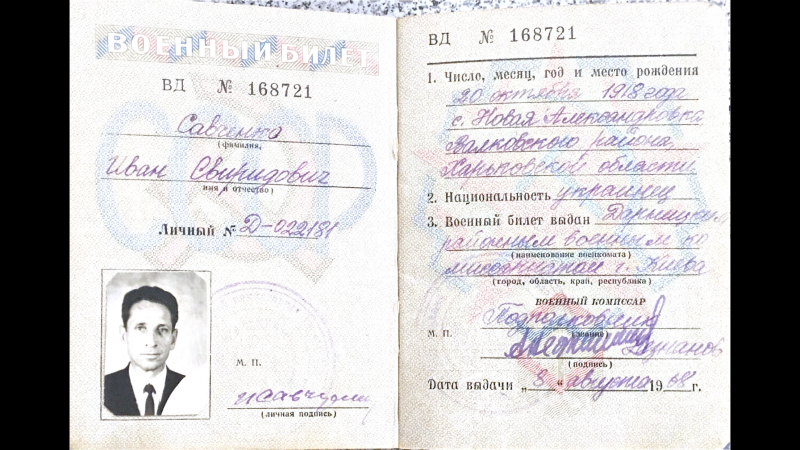 ВОЕННЫЙ БИЛЕТ
ВД № 168721
Савченко
(фамилия,
Иван Свиридович
имя и отчество)
Личный № Д-022181
М. П.
(личная подпись)
ВД № 168721
1. Число, месяц, год и место рождения
20 октября 1918 года
с. Новая Александровка
Валковского района,
Харьковской области
2. Национальность украинец
3. Военный билет выдан Дарницким
районным военным ко
(наименование военкомата)
миссариатом г. Киева
(город, область, край, республика)
ВОЕННЫЙ КОМИССАР
Подполковник
(звание)
М. П.
(подпись)
Дата выдачи „ 8 " августа 1968 г.